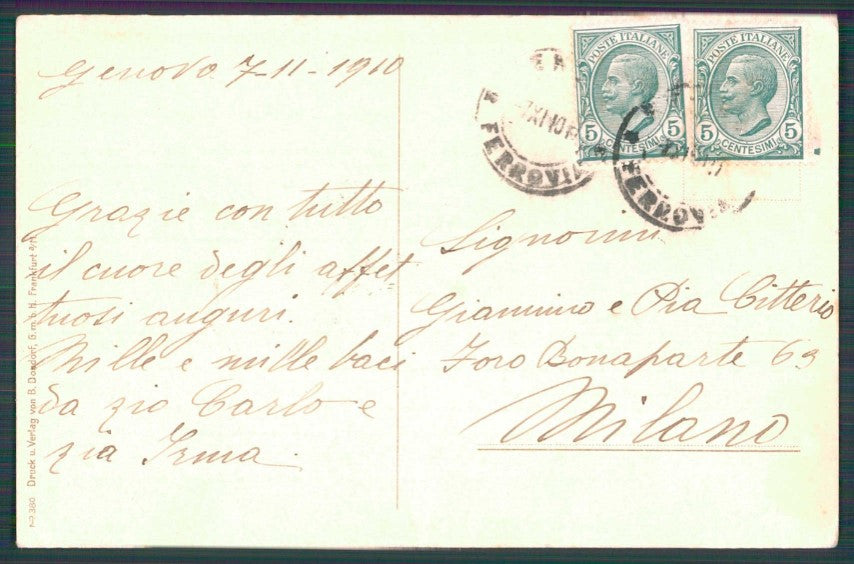 Genova 7-11-1910
Grazie con tutto
il cuore degli affet
tuosi auguri.
Mille e mille baci
da zio Carlo e
zia Irma.
POSTE ITALIANE
5 CENTESIMI 5
POSTE ITALIANE
5 CENTESIMI 5
FERROVIA
FERROVIA
Signorini
Giannino e Pia Citterio
Foro Bonaparte 63
Milano
No 380 Druck u. Verlag von B. Dondorf, G.m.b.H. Frankfurt a/M